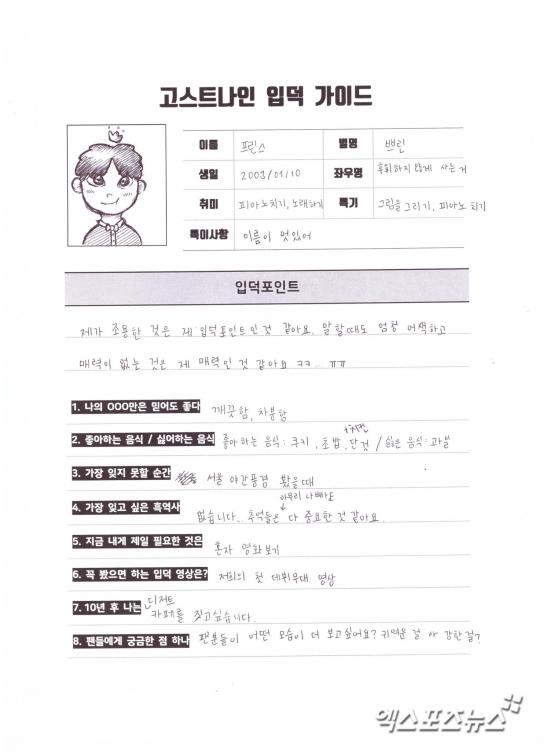 고스트나인 입덕 가이드
이름 프린스 별명 쁘린
생일 2003/01/10 좌우명 후회하지 않게 사는 거
취미 피아노치기, 노래하기 특기 그림을 그리기, 피아노 치기
특이사항 이름이 멋있어
입덕포인트
제가 조용한 것은 제 입덕포인트인 것 같아요. 말할때도 엄청 어색하고
매력이 없는 것은 제 매력인 것 같아요 ㅋㅋ.. ㅠㅠ
1. 나의 OOO만은 믿어도 좋다 깨끗함, 차분함
2. 좋아하는 음식 / 싫어하는 음식 좋아하는 음식 : 쿠키, 초밥, 단것 / 싫은 음식 :
3. 가장 잊지 못할 순간 서울 야간풍경 봤을때
아무리 나빠도
4. 가장 잊고 싶은 흑역사 없습니다. 추억들은 다 중요한 것 같아요.
5. 지금 내게 제일 필요한 것은 혼자 영화보기
6. 꼭 봤으면 하는 입덕 영상은? 저희의 첫 데뷔무대 영상
7. 10년 후 나는 디저트
카페를 짓고싶습니다.
8. 팬들에게 궁금한 점 하나 팬분들이 어떤 모습이 더 보고싶어요? 귀여운 걸 아 강한 걸?
엑스포츠뉴스